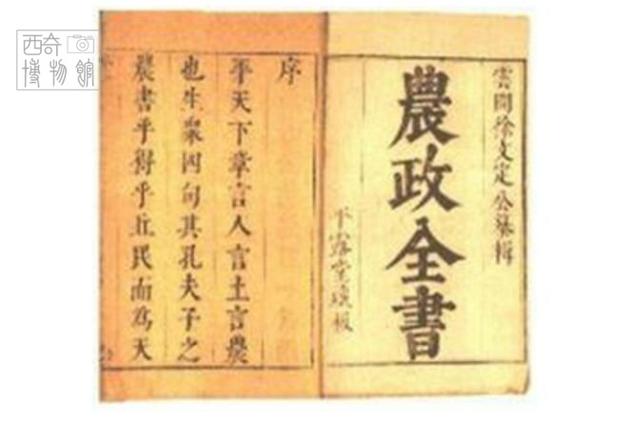 西奇
博物館
雲間徐文定公纂輯
農政全書
平露堂瓊板
序
平天下章言人言土言農
也生衆四句其孔夫子之
農書乎得乎丘民而為天